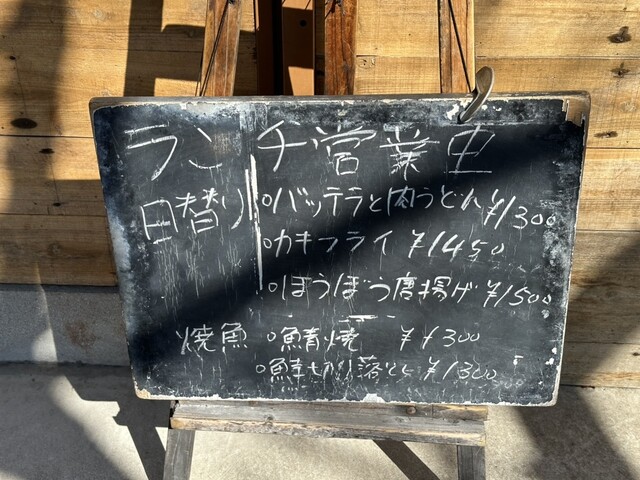 ランチ営業中
日替り ○バッテラと肉うどん ¥1300
○カキフライ ¥1450
○ほうぼう唐揚げ ¥1500
焼魚 ○鯖焼 ¥1300
○鮭切り落とし ¥1300